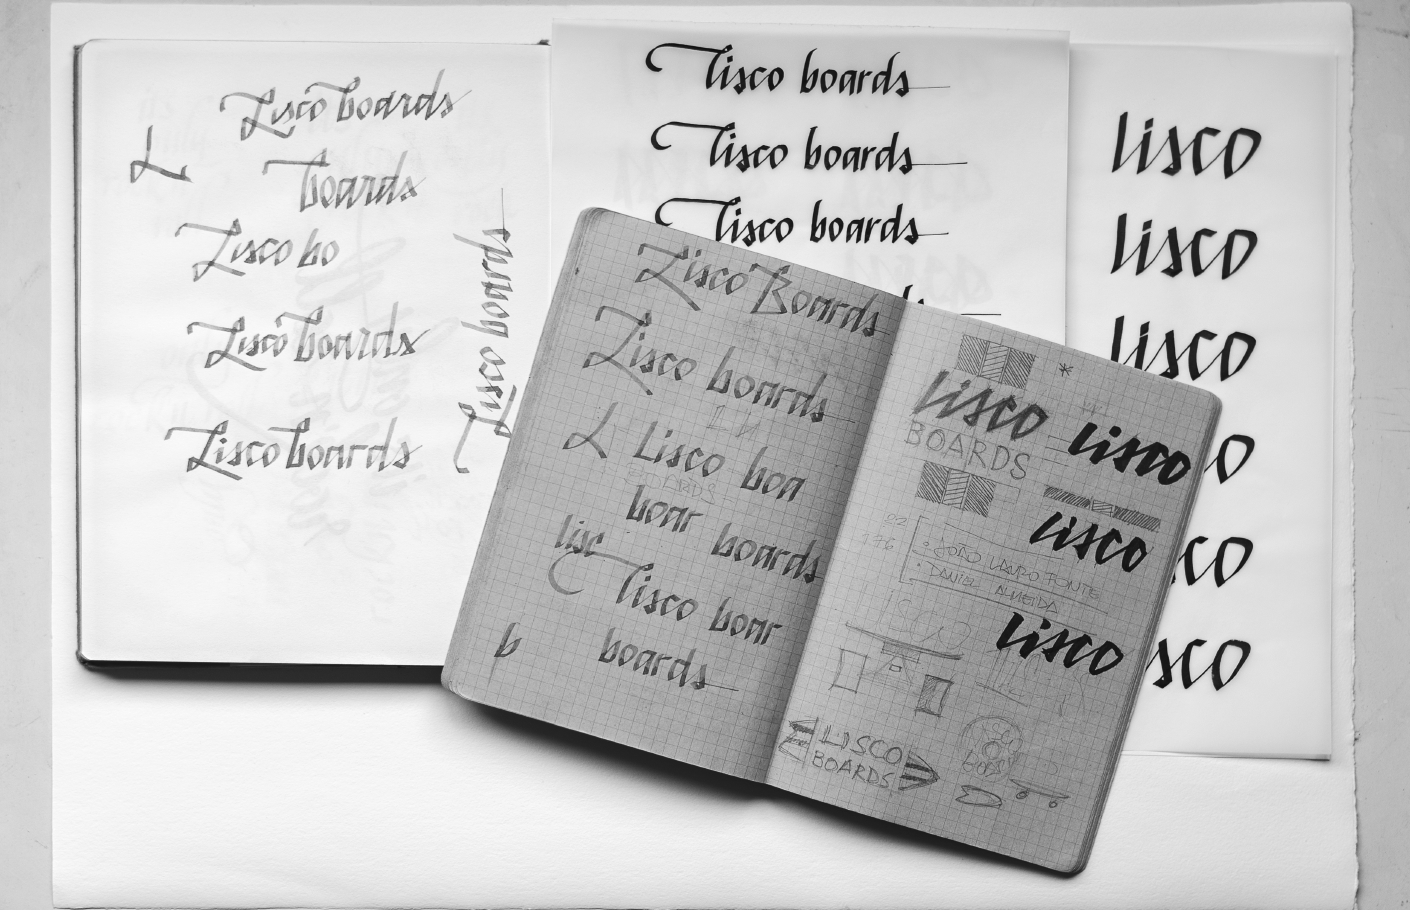 Lisco boards
L
boards
Lisco bo
Lisco boards
Lisco boards
Lisco boards
Lisco boards
Lisco boards
Lisco boards
lisco
lisco
lisco
sco
sco
Lisco Boards
Lisco boards
L Lisco boa
boar boards
lisc
Lisco boar
b boards
lisco
BOARDS
lisco
lisco
22
176
• JOÃO
• DANIEL ALMEIDA
lisco
LISCO
BOARDS